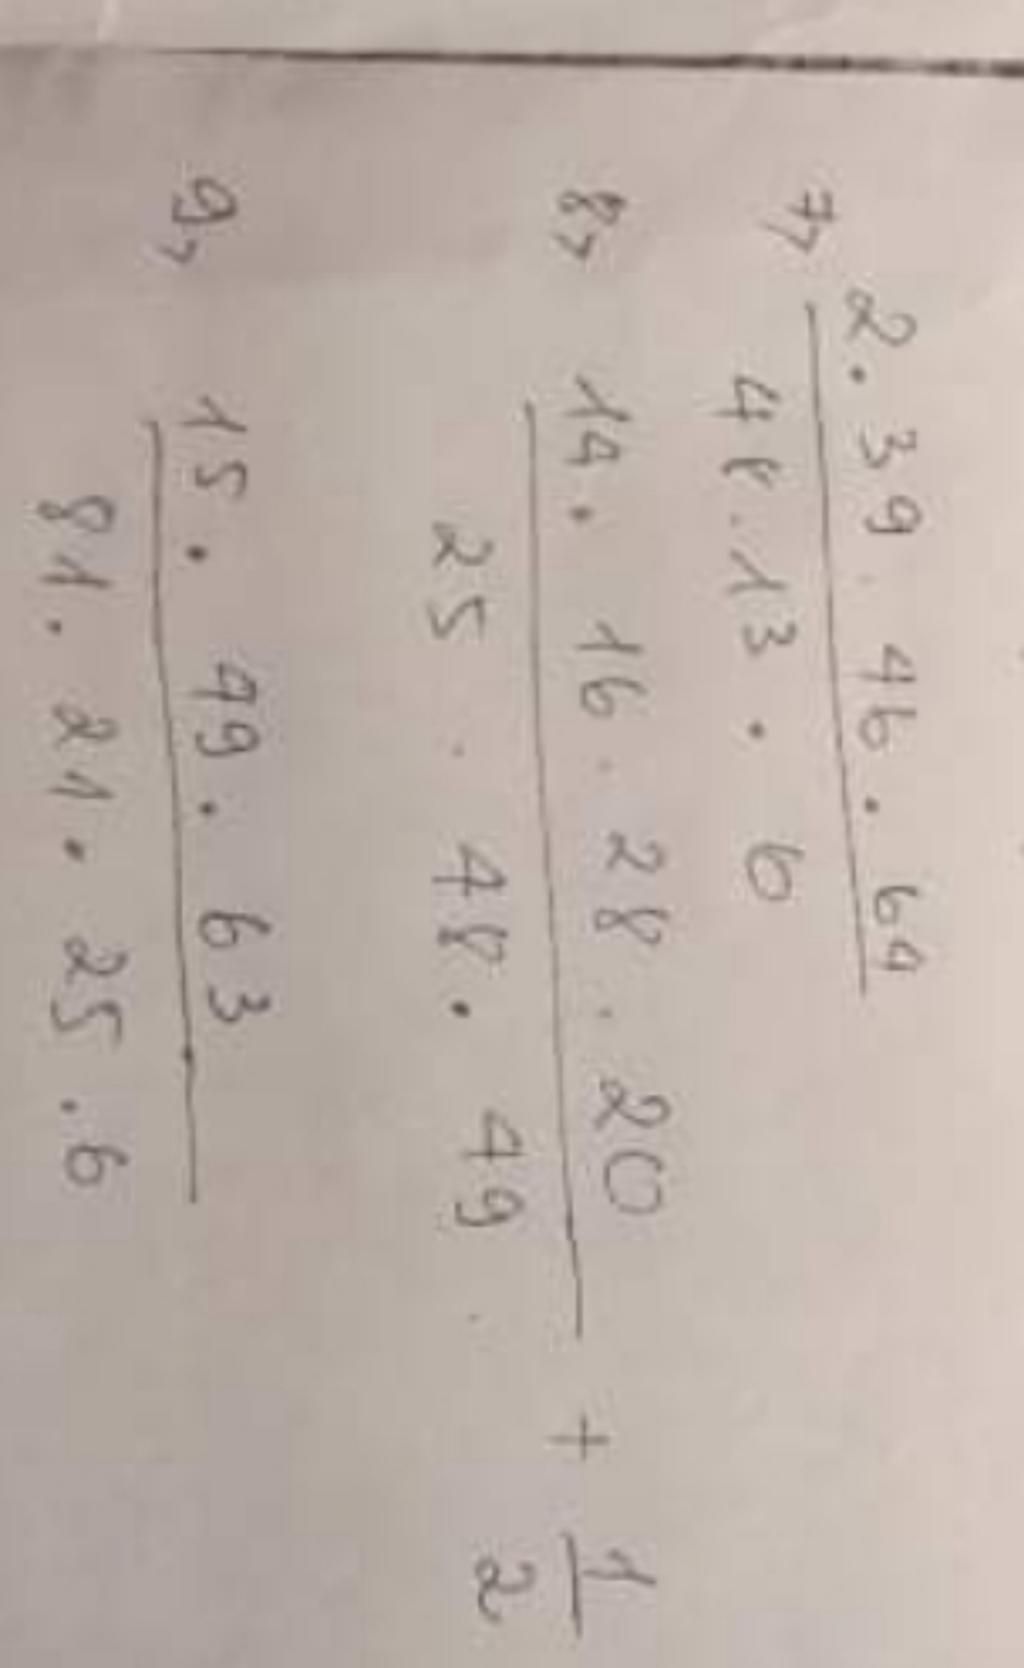 7, 2 . 39 . 46 . 64
48 . 13 . 6
8, 14 . 16 . 28 . 20 + 1
25 . 48 . 49 2
9, 15 . 49 . 63
81 . 21 . 25 . 6